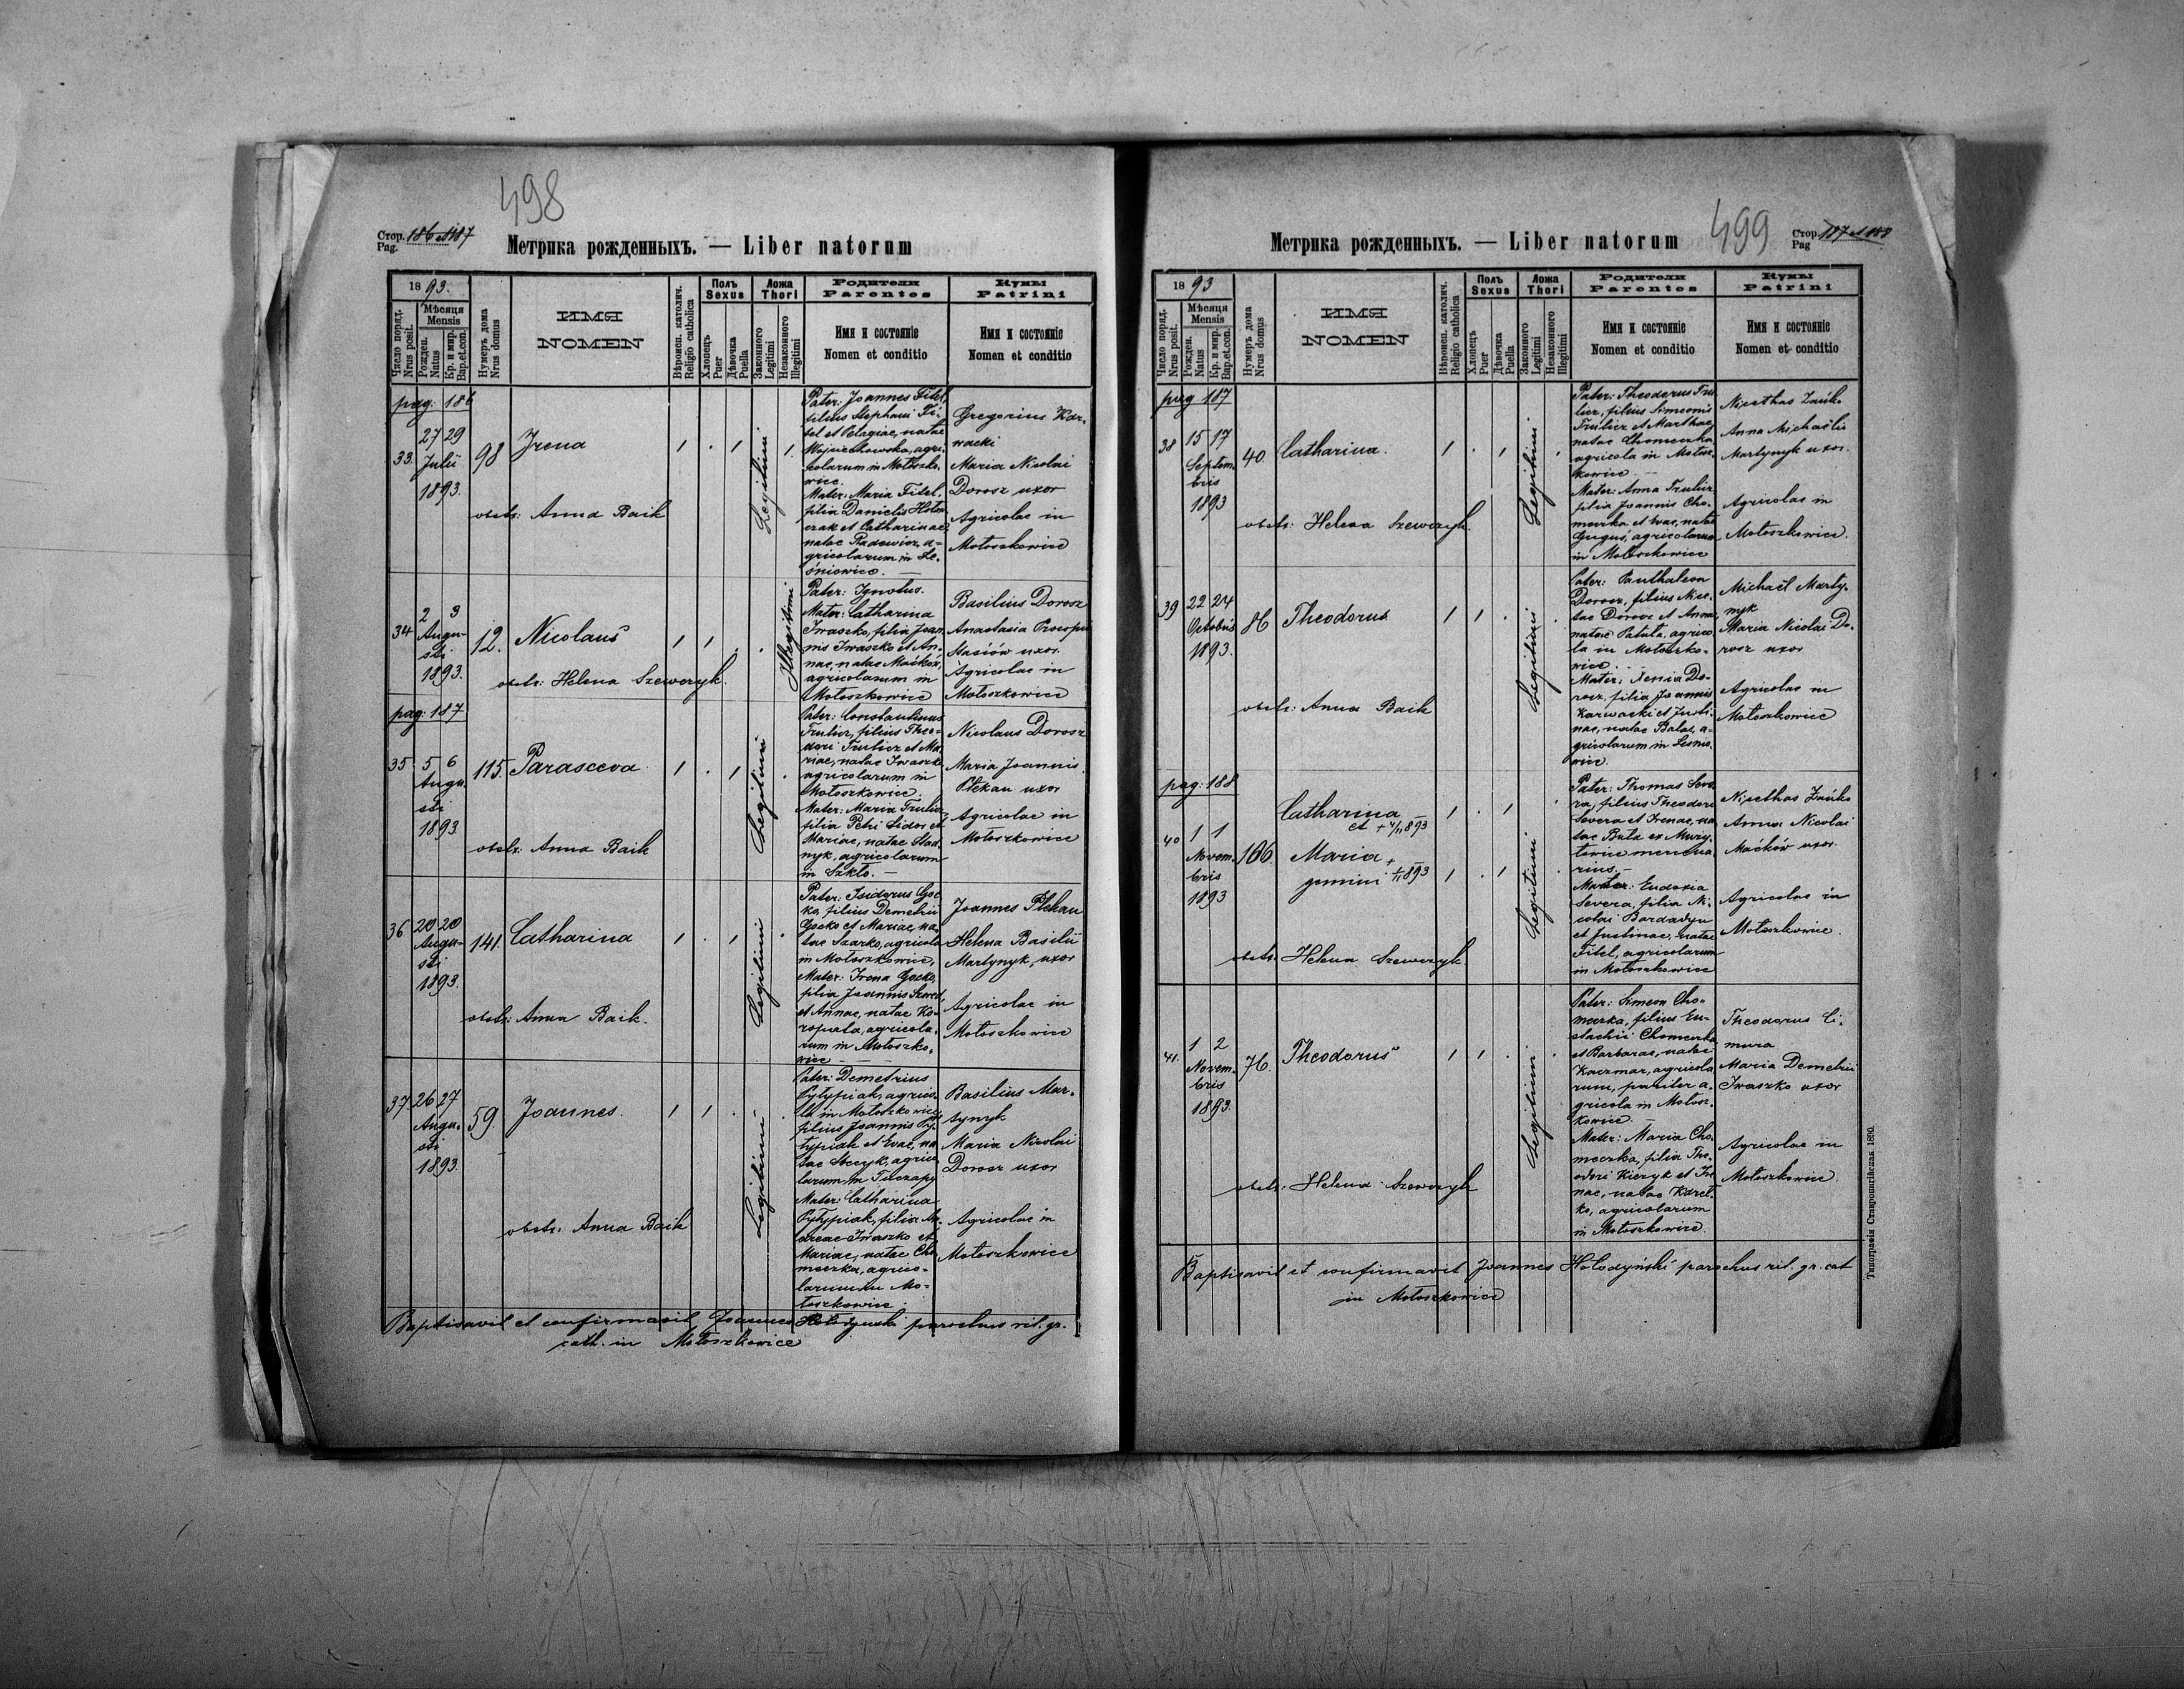 498
Стор. 186 et 187
Pag.
Метрика рожденныхъ. — Liber natorum
1893.
Мѣсяця
Mensis
Число поряд.
Nrus posit.
Рожден.
Natus
Кр. и мир.
Bap. et con.
Нумеръ дома
Nrus domus
ИМЯ
NOMEN
Вѣроисп. католич.
Religio catholica
Полъ
Sexus
Хлопецъ
Puer
Дѣвочка
Puella
Ложа
Thori
Законного
Legitimi
Незаконного
Illegitimi
Родители
Parentes
Имя и состояніе
Nomen et conditio
Кумы
Patrini
Имя и состояніе
Nomen et conditio
pag: 186
33. 27 29
Julii
1893.
98
Irena
obstr: Anna Baik
Legitimi
Pater: Joannes Fitel,
filius Stephani Fi-
tel et Pelagiae, natae
Wojciechowska, agri-
colarum in Mołoszko-
wice.
Mater: Maria Fitel,
filia Danielis
et Catharinae
natae Radewicz, a-
gricolarum in Le-
śniowice. —
Gregorius Kar-
wacki
Maria Nicolai
Dorosz uxor
Agricolae in
Mołoszkowice
34 2 3
Augu-
sti
1893.
12.
Nicolaus
obstr: Helena Szewczyk.
Illegitimi
Pater: Ignotus.
Mater: Catharina
Iwaszko, filia Joan-
nis Iwaszko et An-
nae, natae Maćków,
agricolarum in
Mołoszkowice
Basilius Dorosz
Anastasia Procopii
Stasiów uxor.
Agricolae in
Mołoszkowice
pag: 187
35 5 6
Augu-
sti
1893
115.
Parasceva
obstr: Anna Baik
Legitimi
Pater: Constantinus
Trulicz, filius Theo-
dori Trulicz et Ma-
riae, natae Iwaszko
agricolarum in
Mołoszkowice.
Mater: Maria Trulicz,
filia Petri Sidor et
Mariae, natae Stad-
nyk, agricolarum
in Szkło. —
Nicolaus Dorosz
Maria Joannis
Ptekau uxor
Agricolae in
Mołoszkowice
36 20 20
Augu-
sti
1893.
141.
Catharina
obstr: Anna Baik.
Legitimi
Pater: Isidorus Goc-
ko, filius Demetrii
Gocko et Mariae, na-
tae Szarko, agricola
in Mołoszkowice,
Mater: Irena Gocko,
filia Joannis Szwed,
et Annae, natae Ko-
ropata, agricola-
rum in Mołoszko-
wice
Joannes Ptekau
Helena Basilii
Martynyk, uxor
Agricolae in
Mołoszkowice
37 26 27
Augu-
sti
1893.
59.
Joannes.
obstr: Anna Baik
Legitimi
Pater: Demetrius
Pytypiak, agrico-
la in Mołoszkowice,
filius Joannis Py-
typiak et Evae, na-
tae Steczyk, agrico-
larum in Tuczapy
Mater: Catharina
Pytypiak, filia An-
dreae Iwaszko et
Mariae, natae Cho-
meczka, agrico-
larum in Mo-
łoszkowice
Basilius Mar-
tynyk
Maria Nicolai
Dorosz uxor
Agricolae in
Mołoszkowice
Baptisavit et confirmavit Joannes Hołodyński parochus rit. gr.
cath. in Mołoszkowice
499
Стор. 187 et 188
Pag
Метрика рожденныхъ. — Liber natorum
1893
Мѣсяця
Mensis
Число поряд.
Nrus posit.
Рожден.
Natus
Кр. и мир.
Bap. et con.
Нумеръ дома
Nrus domus
ИМЯ
NOMEN
Вѣроисп. католич.
Religio catholica
Полъ
Sexus
Хлопецъ
Puer
Дѣвочка
Puella
Ложа
Thori
Законного
Legitimi
Незаконного
Illegitimi
Родители
Parentes
Имя и состояніе
Nomen et conditio
Кумы
Patrini
Имя и состояніе
Nomen et conditio
pag 187
38 15 17
Septem-
bris
1893
40
Catharina.
obstr: Helena Szewczyk.
Legitimi
Pater: Theodorus Tru-
licz, filius Simeonis
Trulicz et Marthae,
natae Chomeczka
agricola in Mołosz-
kowice. —
Mater: Anna Trulicz
filia Joannis Cho-
meczka et Evae, natae
Gugus, agricolarum
in Mołoszkowice
Nicethas Zańko
Anna Michaelis
Martynyk uxor.
Agricolae in
Mołoszkowice.
39 22 24
Octobris
1893.
86
Theodorus
obstr: Anna Baik
Legitimi
Pater: Panthaleon
Dorosz, filius Nice-
tae Dorosz et Annae,
natae Patuta, agrico-
la in Mołoszko-
wice. —
Mater: Xenia Do-
rosz, filia Joannis
Karwacki et Justi-
nae, natae Balas, a-
gricolarum in Lesnio-
wice.
Michaël Marty-
nyk
Maria Nicolai Do-
rosz uxor
Agricolae in
Mołoszkowice
pag: 188
40 1 1
Novem-
bris
1893
166.
Catharina
et + 4/11 1893
Maria +
gemini 1893
obstr: Helena Szewczyk.
Legitimi
Pater: Thomas Seve-
ra, filius Theodori
Severa et Irenae, na-
tae Buta ex Muży-
łowice mercena-
rius. —
Mater: Eudoxia
Severa, filia Ni-
colai Bardadyn
et Justinae, natae
Fitel, agricolarum
in Mołoszkowice
Nicethas Zańko
Anna Nicolai
Maćków uxor.
Agricolae in
Mołoszkowice.
41. 1 2
Novem-
bris
1893.
76.
Theodorus
obstr: Helena Szewczyk
Legitimi
Pater: Simeon Cho-
meczka, filius Eu-
stachii Chomeczka
et Barbarae, natae
Kaczmar, agricola-
rum, pariter a-
gricola in Mołosz-
kowice. —
Mater: Maria Cho-
meczka, filia Theo-
dori Kiczyk et Ire-
nae, natae Karet-
ko, agricolarum
in Mołoszkowice.
Theodorus Ci-
mura
Maria Demetrii
Iwaszko uxor
Agricolae in
Mołoszkowice.
Baptisavit et confirmavit Joannes Hołodyński parochus rit. gr. cat
in Mołoszkowice
Типографія Ставропигійская 1890.